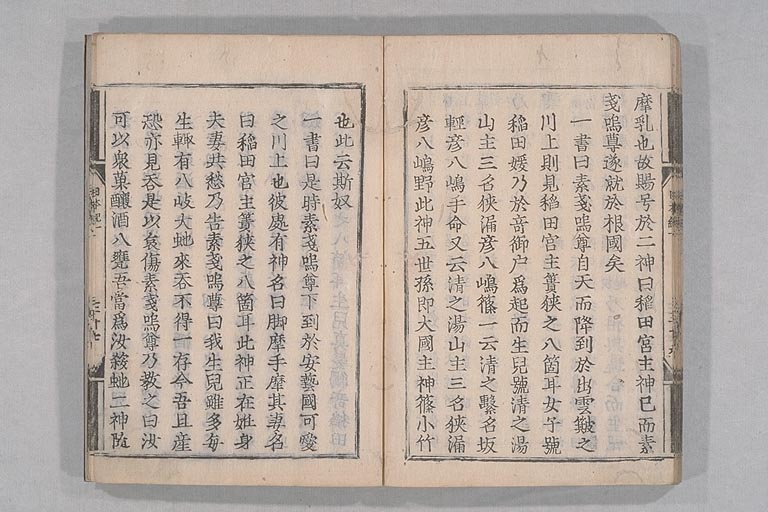 摩乳也故賜号於二神曰稲田宮主神已而素
戔嗚尊遂就於根國矣
一書曰素戔嗚尊自天而降到於出雲簸之
川上則見稲田宮主簀狹之八箇耳女子號
稲田媛乃於竒御户為起而生兒號清之湯
山主三名狹漏彦八嶋篠一云清之繋名坂
輕彦八嶋手命又云清之湯山主三名狹漏
彦八嶋野此神五世孫即大國主神篠小竹
也此云斯奴
一書曰是時素戔嗚尊下到於安藝國可愛
之川上也彼處有神名曰脚摩手摩其妻名
曰稲田宮主簀狹之八箇耳此神正在姙身
夫妻共愁乃告素戔嗚尊曰我生兒雖多毎
生輙有八岐大虵來吞不得一存今吾且産
恐亦見吞是以哀傷素戔嗚尊乃教之曰汝
可以衆菓釀酒八甕吾當爲汝殺虵二神随